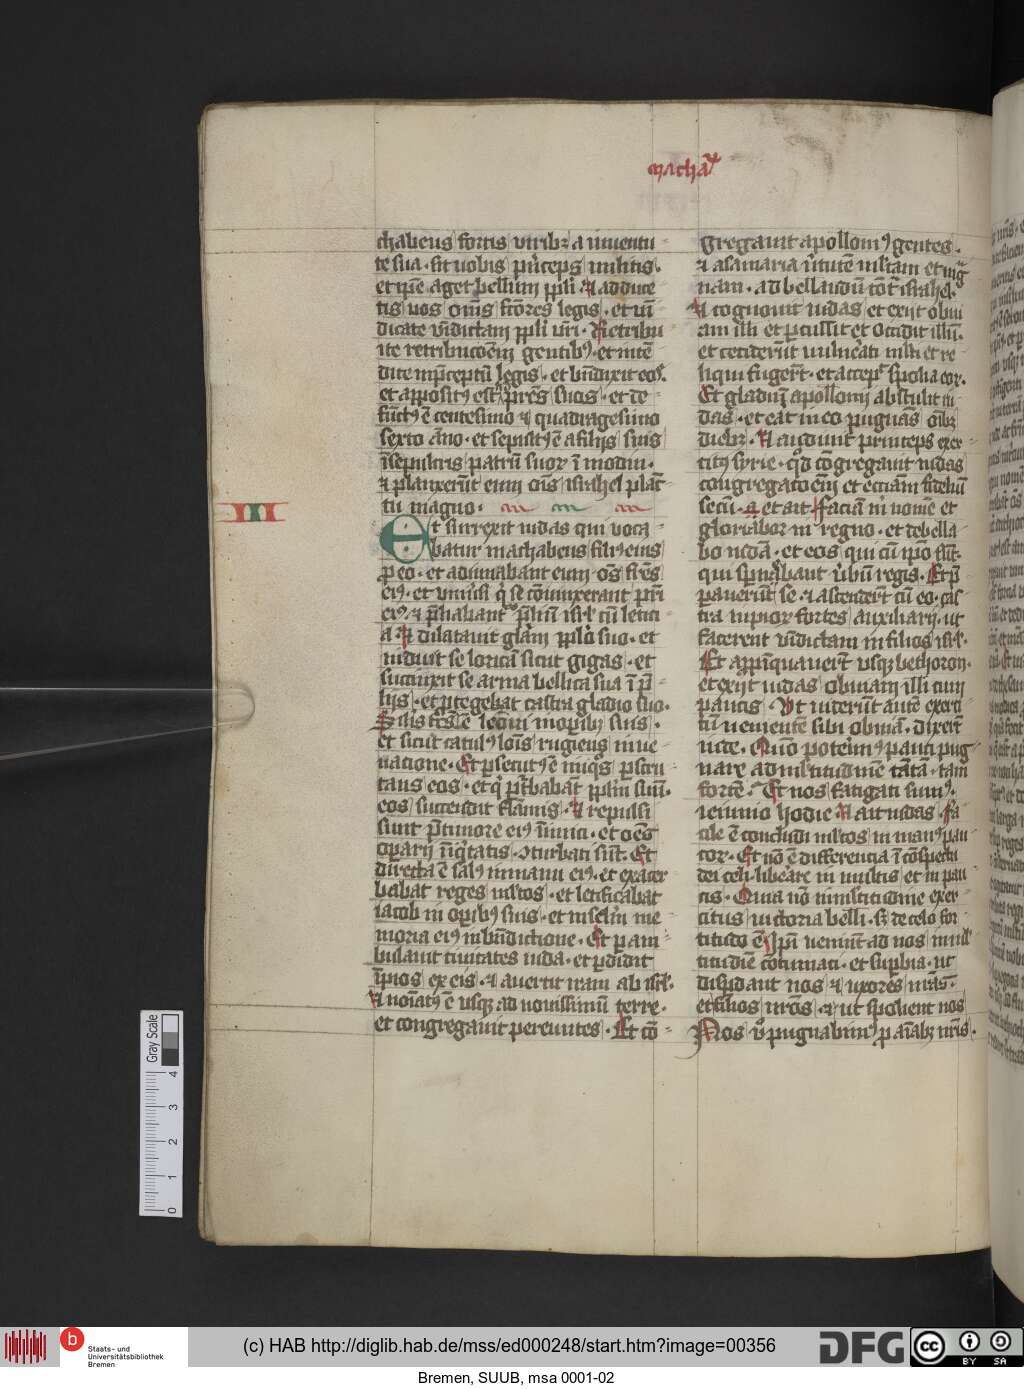 machaꝭ
chabeus fortis viribꝫ a iuuentu
te sua · sit uobis pͥnceps militie ·
et ip̄e aget bellum pp̄li · Et adduce
tis uos om̄s fc̄ores legis · et uī
dicate vīdictam pp̄li vr̄i · Retribu
ite retribuc̄oem gentibꝰ · et intē
dite in p̄ceptū legis · et bn̄dixit eos ·
et appositꝰ est ad pr̄es suos · et de
fūctꝰ ē centesimo et quadragesimo
sexto āno · et sepultꝰ ē a filijs suis
ī sepulcris patrū suoꝝ ī modin ·
et planxerūt eum om̄s israhel planc̄
tu magno ·
III
Et surrexit iudas qui voca
batur machabeus filiꝰ eius
ꝑ eo · et adiuuabant eum om̄s fr̄es
eiꝰ · et vniũsi qͥ se cōiunxerant pr̄i
eiꝰ · et p̄liabant᷑ p̄lium isrl̄ cū letici
a · Et dilatauit gl̄am pp̄lo suo · et
induit se loricā sicut gigas · et
succinxit se arma bellica sua ī p̄
lijs · et ꝓtegebat castra gladio suo ·
Sil̄is fc̄us ē leoni in oꝑibꝰ suis ·
et sicut catulꝰ leōis rugiens in ue
nacione · Et ꝑsecutꝰ ē iniqͦs ꝑscru
tans eos · et qͥ ꝯt᷑babāt pp̄lm suū ·
eos succendit flāmis · Et repulsi
sunt p̄ timore eiꝰ īimici · et oēs
oꝑarij īiqͥtatis ꝯturbati sūt · Et
directa ē salꝰ in manu eiꝰ · et exacer
babat reges ml̄tos · et letificabat
iacob in oꝑibꝰ suis · et in sc̄lm me
moria eiꝰ in bn̄dictione · Et ꝑam
bulauit ciuitates iuda · et ꝑdidit
īpios ex eis · et auertit iram ab isrl̄ ·
Et noīatꝰ ē usqꝫ ad nouissimū terre ·
et congregauit pereuntes · Et cō
gregauit apolloniꝰ gentes ·
et a samaria v̾tutē ml̄tam et mag
nam · ad bellandū cōt᷑ israhel ·
Et cognouit iudas et exijt obui
am illi et ꝑcussit et occidit illū ·
et ceciderūt uulnerati ml̄ti et re
liqui fugerūt · et accepit spolia eoꝝ ·
Et gladiū apollonij abstulit iu
das · et erat in eo pugnās om̄ibꝫ
diebꝫ · Et audiuit princeps exer
citꝰ syrie · qd̄ cōgregauit iudas
congregatōem et eccl̄iam fideliū
secū · et ait · faciā m̄ nomē et
glorificabor in regno · et debella
bo iudā · et eos qui cū ip̄o sūt ·
qui sp̄nebant v̾bū regis · Et p̄
parauerūt se · et ascenderūt cū eo · cas
tra impioꝝ fortes auxiliarij · ut
facerent vīdictam in filios isrl̄ ·
Et app̄inquauerūt usqꝫ bethoron ·
et exijt iudas obuiam illi cum
paucis · Vt uiderūt autē exerci
tū uenientē sibi obuiā · dixerūt
iude · Quō poterimꝰ pauci pug
nare ad ml̄titudinē tātā · tam
fortē · Et nos fatigati sumꝰ ·
ieiunio hodie · Et ait iudas · fa
cile ē concludi ml̄tos in manꝰ pau
coꝝ · Et nō ē differencia ī cōspectu
dei celi · liberare in multis et in pau
cis · Quia nō in ml̄titudine exer
citus uictoria belli · sꝫ de celo for
titudo ē · Ip̄i ueniūt ad nos in ml̄
titudīe cōtumaci · et suꝑbia · ut
disꝑdant nos et vxores nr̄as ·
et filios nr̄os · et ut spolient nos
Nos v̾o pugnabimꝰ ꝑ aīabꝫ nr̄is ·
Gray Scale
0 1 2 3 4
Staats- und
Universitätsbibliothek
Bremen
(c) HAB http://diglib.hab.de/mss/ed000248/start.htm?image=00356
DFG
cc BY SA
Bremen, SUUB, msa 0001-02